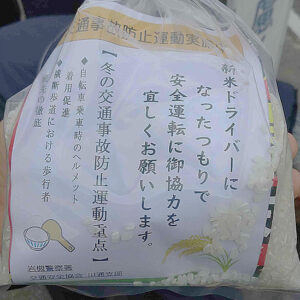 交通事故防止運動実施中
新米ドライバーに
なったつもりで
安全運転に御協力を
宜しくお願いします。
【冬の交通事故防止運動重点】
◆自転車乗車時のヘルメット
着用促進
◆横断歩道における歩行者
の徹底
岩槻警察署